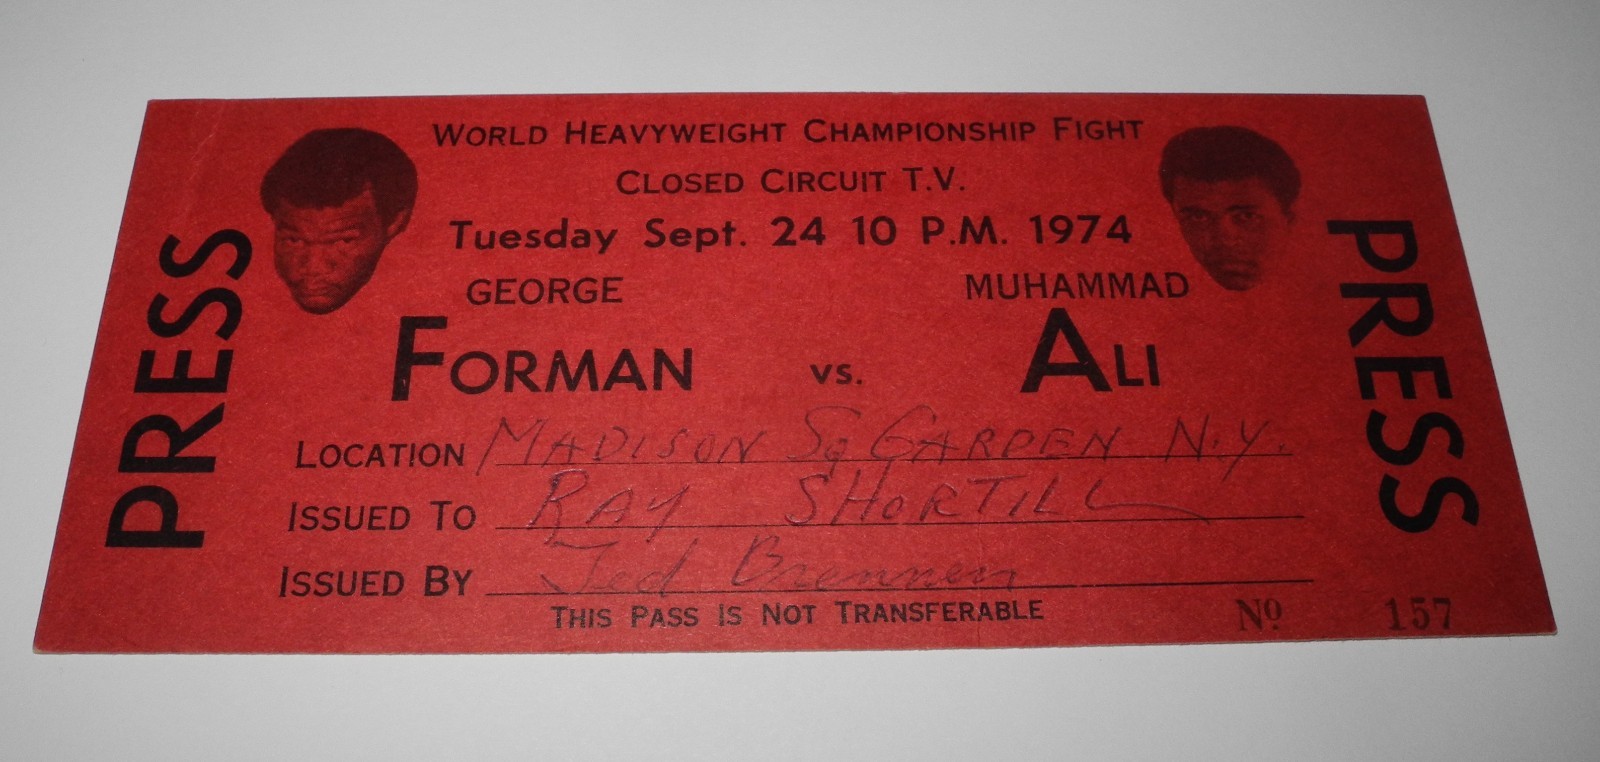 WORLD HEAVYWEIGHT CHAMPIONSHIP FIGHT
CLOSED CIRCUIT T.V.
Tuesday Sept. 24 10 P.M. 1974
GEORGE MUHAMMAD
FORMAN vs. ALI
LOCATION MADISON SQ GARDEN N.Y.
ISSUED TO RAY SHORTILL
ISSUED BY Ted Brennen
THIS PASS IS NOT TRANSFERABLE
Nº 157
PRESS
PRESS